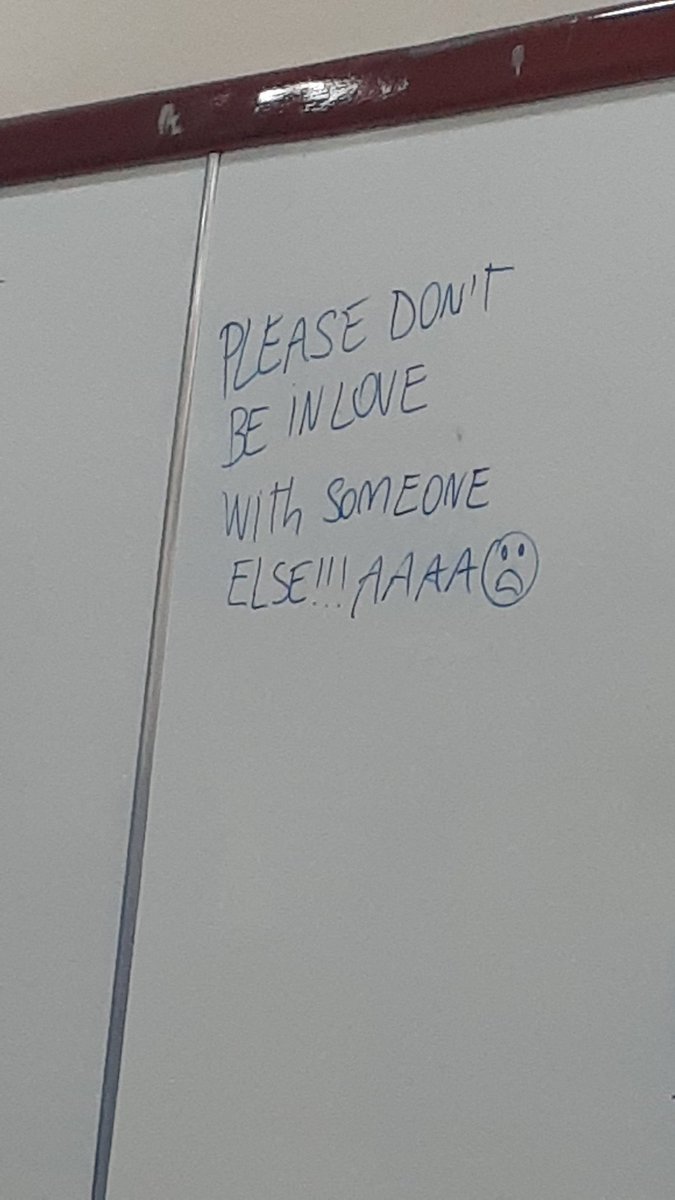 PLEASE DON'T
BE IN LOVE
With SOMEONE
ELSE!!! AAAA